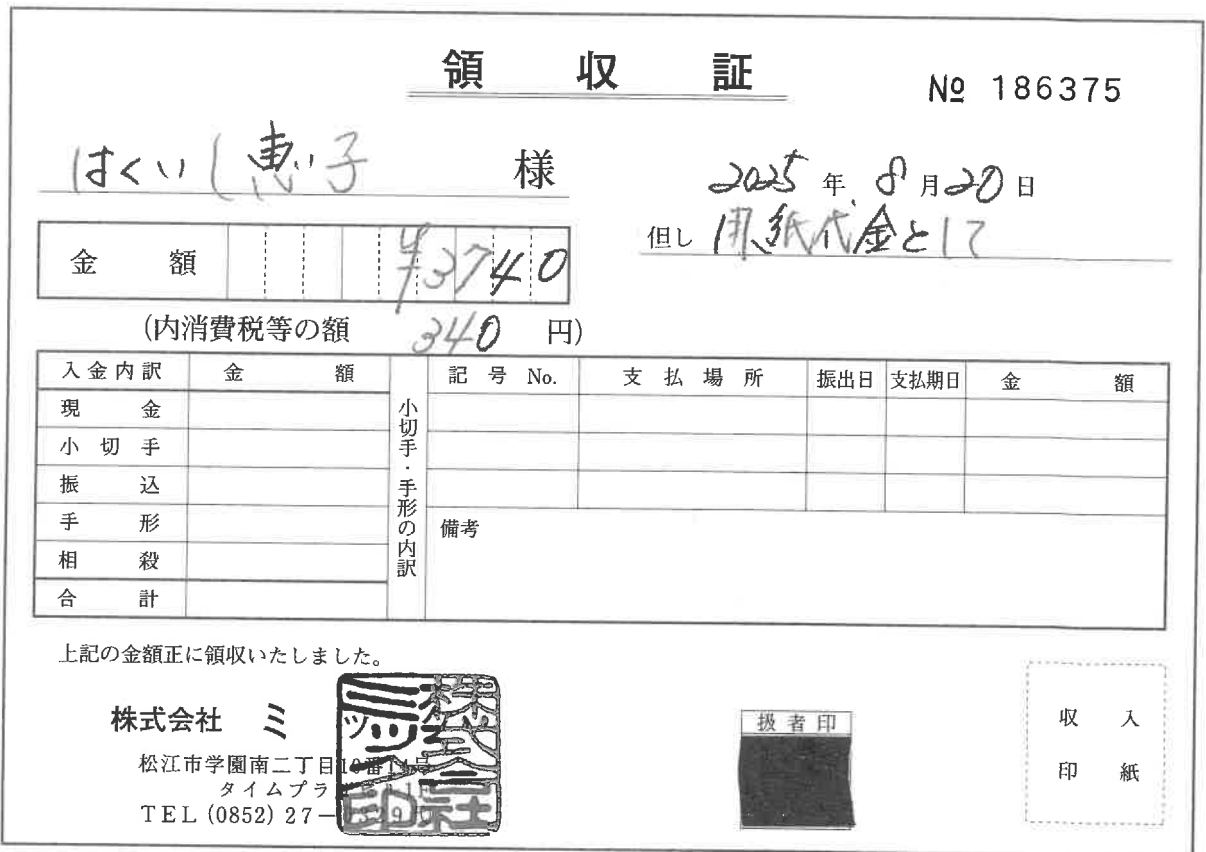 領収証
№ 186375
はくいし恵子 様
2025年 8月20日
但し 用紙代金として
金額 ¥3740
(内消費税等の額 340 円)
入金内訳 金額
現金
小切手
振込
手形
相殺
合計
小切手・手形の内訳
記号 No. 支払場所 振出日 支払期日 金額
備考
上記の金額正に領収いたしました。
株式会社 ミ
松江市学園南二丁目
タイムプラ
TEL (0852) 27-
扱者印
収入
印紙